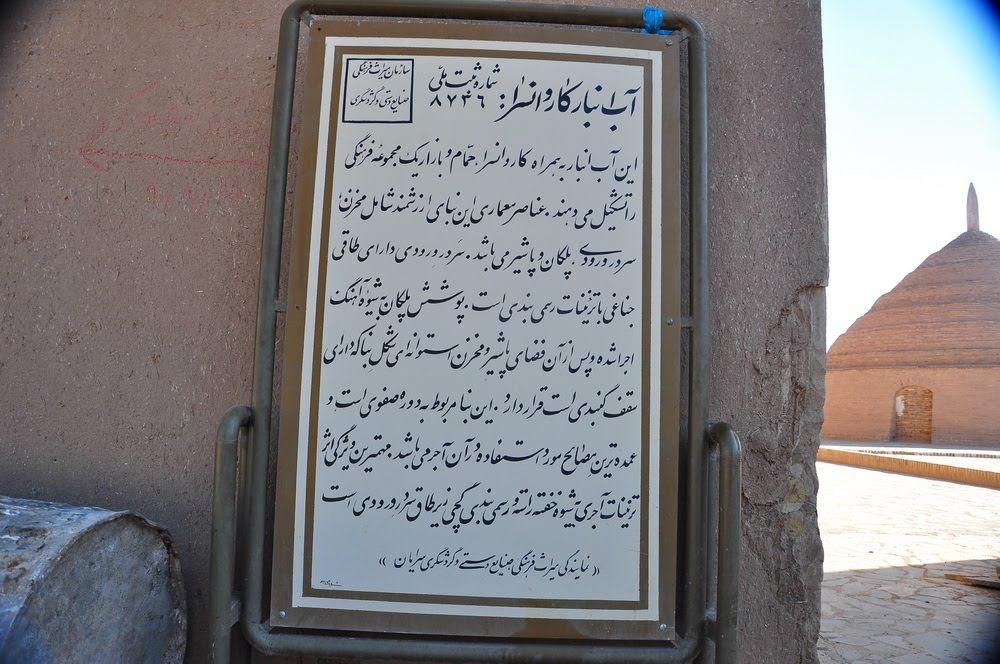 آب انبار کاروانسرا: شماره ثبت ملّی ۸۷۴۶
سازمان میراث فرهنگی
صنایع دستی و گردشگری
این آب انبار به همراه کاروانسرا، حمّام و بازار یک مجموعه فرهنگی
را تشکیل می دهند. عناصر معماری این بنای ارزشمند شامل مخزن،
سردر ورودی، پلکان و پاشیر می باشد. سردر ورودی دارای طاقی
جناغی با تزئینات رسمی بندی است. پوشش پلکان به شیوه آهنگ
اجرا شده و پس از آن فضای پاشیر و مخزن استوانه ای شکل بنا که دارای
سقف گنبدی است قرار دارد. این بنا مربوط به دوره صفوی است و
عمده ترین مصالح مورد استفاده در آن آجر می باشد. مهمترین ویژگی اثر
تزئینات آجری به شیوه خفته راسته و رسمی بندی گچی زیر طاق سردر ورودی است
(( نمایندگی میراث فرهنگی، صنایع دستی و گردشگری سرایان ))